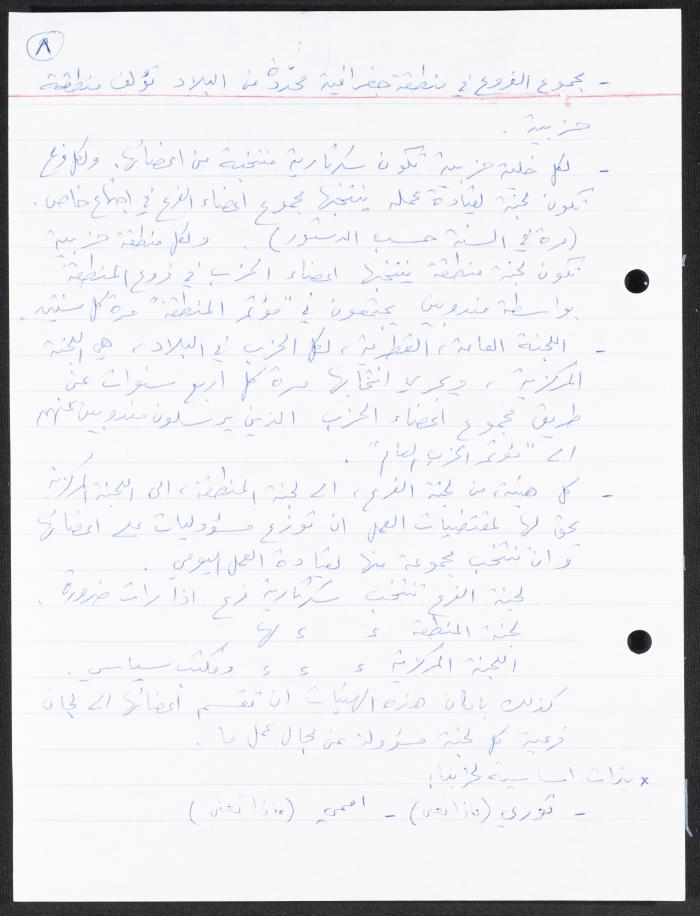 ٨
- مجموع الفروع في منطقة جغرافية محدّدة من البلاد تؤلف منطقة
حزبية .
- لكل خلية حزبية تكون سكرتارية منتخبة من اعضائها. ولكل فرع
تكون لجنة لقيادة عمله ينتخبها مجموع اعضاء الفرع في اجتماع خاص.
(مرة في السنة حسب الدستور) . ولكل منطقة حزبية
تكون لجنة منطقة ينتخبها اعضاء الحزب في فروع المنطقة
بواسطة مندوبين يجتمعون في "مؤتمر المنطقة" مرة كل سنتين.
- اللجنة العامة، القطرية، لكل الحزب في البلاد، هي اللجنة
المركزية ، ويجري انتخابها مرة كل اربع سنوات عن
طريق مجموع اعضاء الحزب الذين يرسلون مندوبين عنهم
الى "مؤتمر الحزب العام" .
- كل هيئة، من لجنة الفرع، الى لجنة المنطقة، الى اللجنة المركزية
يحق لها لمقتضيات العمل ان توزع مسؤوليات على اعضائها
وان تنتخب مجموعة منها لقيادة العمل اليومي .
لجنة الفرع تنتخب سكرتارية فرع اذا رأت ضرورة .
لجنة المنطقة ء ء لها
اللجنة المركزية ء ء ء ومكتب سياسي .
كذلك بامكان هذه الهيئات ان تقسم أعضائها الى لجان
فرعية كل لجنة مسؤولة عن مجال عمل ما .
x ميزات اساسية لحزبنا:
- ثوري (ماذا تعني) - اممي (ماذا تعني)